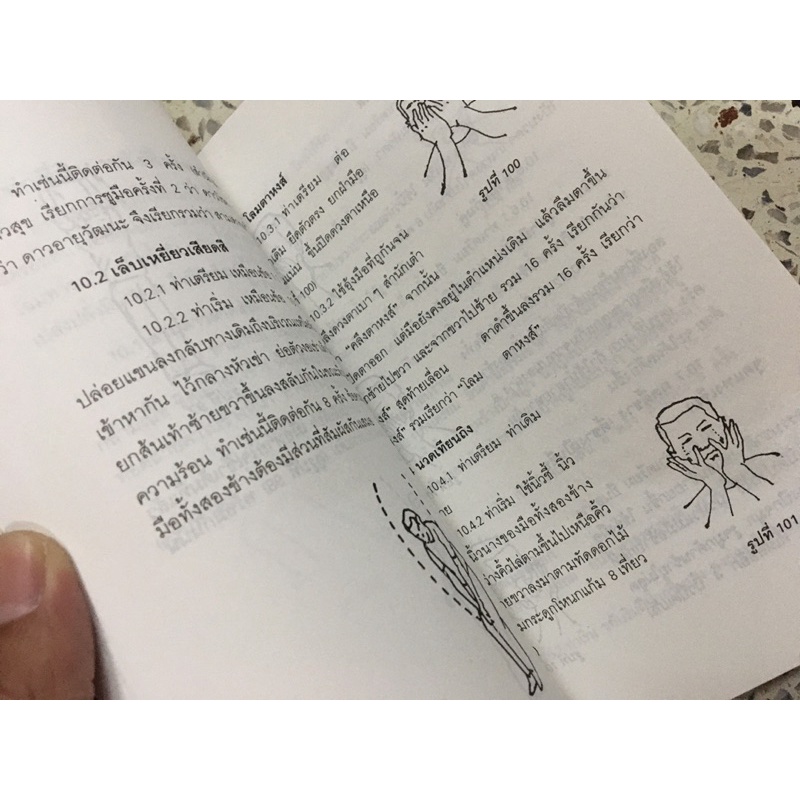 ทำเช่นนี้ติดต่อกัน 3 ครั้ง
วสุข เรียกการชูมือครั้งที่ 2 ว่า
ว่า ดาวอายุวัฒนะ จึงเรียกรวมว่า
10.2 เล็บเหยี่ยวเสียดสี
10.2.1 ท่าเตรียม เหมือนข้อ
10.2.2 ท่าเริ่ม เหมือนข้อ
ปล่อยแขนลงกลับทางเดิมถึงบริเวณ
เข้าหากัน ไว้กลางหัวเข่า ย่อตัวลง
ยกส้นเท้าซ้ายขวาขึ้นลงสลับกัน
ความร้อน ทำเช่นนี้ติดต่อกัน 8 ครั้ง
มือทั้งสองข้างต้องมีส่วนที่สัมผัสกัน
รูปที่ 100
โลมตาหงส์
10.3.1 ท่าเตรียม ต่อ
เดิม ยืดตัวตรง ยกฝ่ามือ
ขึ้นปิดดวงตาเหนือ
100)
10.3.2 ใช้อุ้งมือที่ถูกันจน
ลึงดวงตาเบา ๆ สำนักเต๋า
"คลึงตาหงส์" จากนั้น
ปิดตาออก แต่มือยังคงอยู่ในตำแหน่งเดิม แล้วลืมตาขึ้น
กซ้ายไปขวา และจากขวาไปซ้าย รวม 16 ครั้ง เรียกกันว่า
งส์" สุดท้ายเลื่อน ตาดำขึ้นลงรวม 16 ครั้ง เรียกว่า
งส์" รวมเรียกว่า "โลม ตาหงส์"
นวดเทียนถิง
10.4.1 ท่าเตรียม ท่าเดิม
10.4.2 ท่าเริ่ม ใช้นิ้วชี้ นิ้ว
นิ้วนางของมือทั้งสองข้าง
ว่างคิ้วไล่ตามขึ้นไปเหนือคิ้ว
ายขวาลงมาตามทัดดอกไม้
มกระดูกโหนกแก้ม 8 เที่ยว
รูปที่ 101